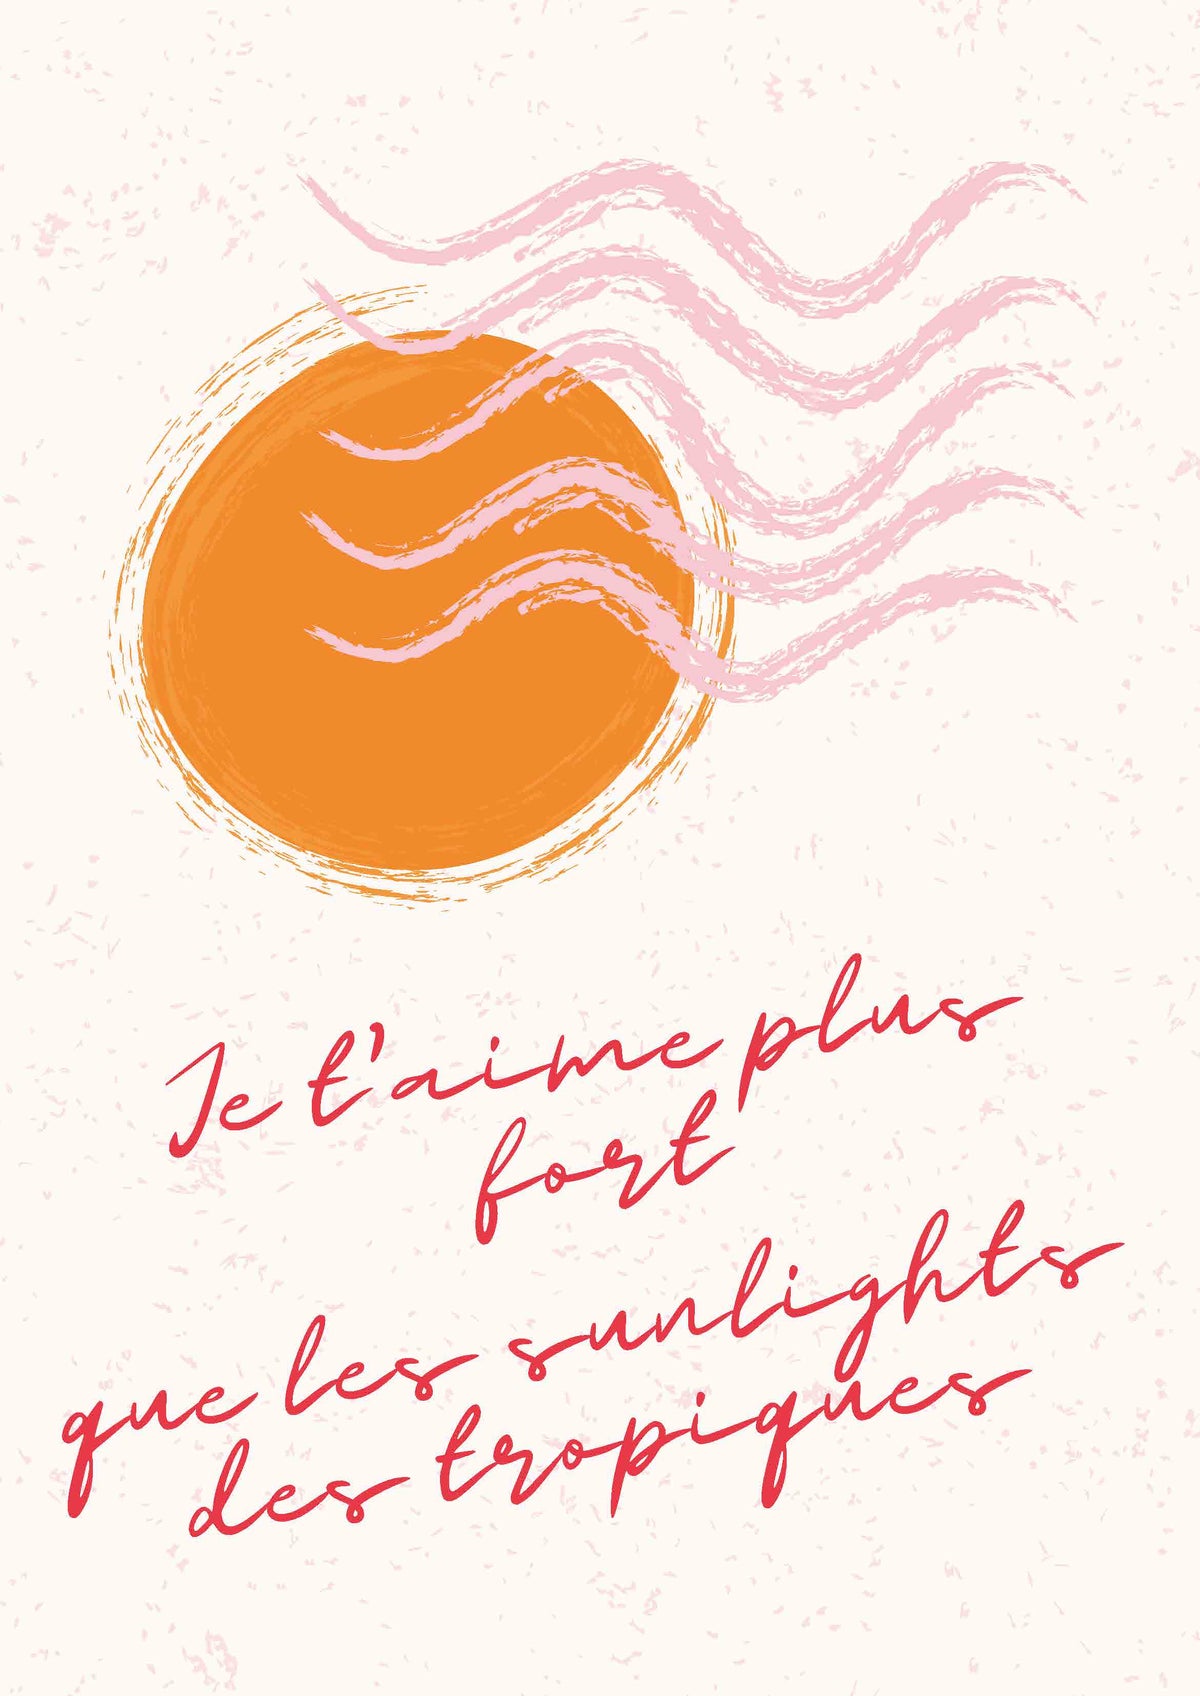 Je t'aime plus
fort
que les sunlights
des tropiques